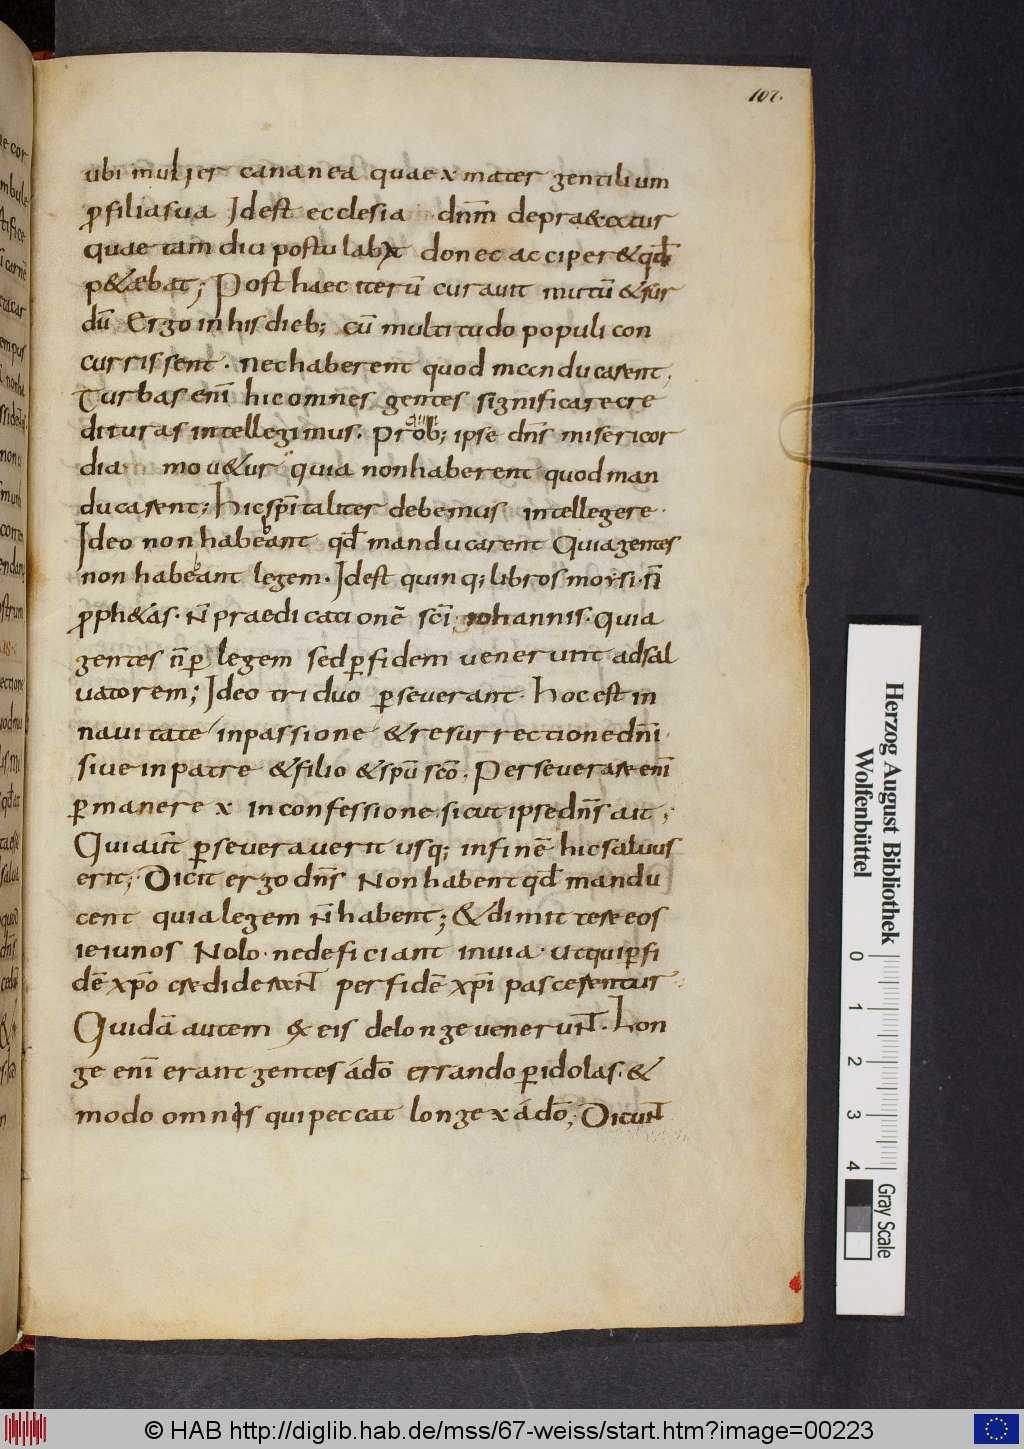 107.
ubi mulier cananea quaex mater gentilium
p̱ filia sua Idest ecclesia dn̄m depraecatur
quae tam diu postulabat donec acciper& qđ
p&ebat; Post haec iterū curauit mutū & sur
dū Ergo in his dieb; cū multitudo populi con
currissent. nec haberent quod manducarent,
Turbas enī hic omnes gentes significare cre
dituras intellegimus. Prob; ipse dn̄s misericor
dia mou&ur quia non haberent quod man
ducarent; Hic sp̄italiter debemus intellegere.
Ideo non habeant qđ manducarent Quia gentes
non habeant legem. Idest quinq; libros moysi. n̄
p̱ph&as. N̄ praedicationē sc̄i iohannis. Quia
gentes n̄ p̱ legem sed p̱ fidem uenerunt ad sal
uatorem; Ideo triduo p̱seuerant. Hoc est in
nauitate in passione & resurrectione dn̄i.
siue in patre & filio & sp̄u sc̄o. Perseuerare enī
p̱manere x in confessione. sicut ipse dn̄s ait;
Qui aūt p̱seuerauerit usq; in finē hic saluus
erit; Dicit ergo dn̄s Non habent qđ mandu
cent quia legem n̄ habent; & dimittere eos
ieiunos Nolo. ne deficiant in uia. ut qui p̱ fi
dē xp̄o crediderant per fidē xp̄i pascerentur
Quidā autem ex eis de longe uenerunt. Lon
ge enī erant gentes á dō errando p̱ idolas. &
modo omnis qui peccat longe x á dō; Dicunt
Herzog August Bibliothek
Wolfenbüttel
0 1 2 3 4
Gray Scale
© HAB http://diglib.hab.de/mss/67-weiss/start.htm?image=00223